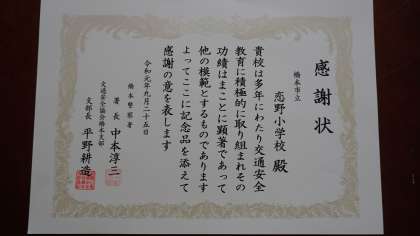 感謝状
橋本市立
恋野小学校 殿
貴校は多年にわたり交通安全
教育に積極的に取り組まれその
功績はまことに顕著であって
他の模範とするものであります
よってここに記念品を添えて
感謝の意を表します
令和元年九月二十五日
橋本警察署
署長 中本淳三
交通安全協会橋本支部
支部長 平野耕造